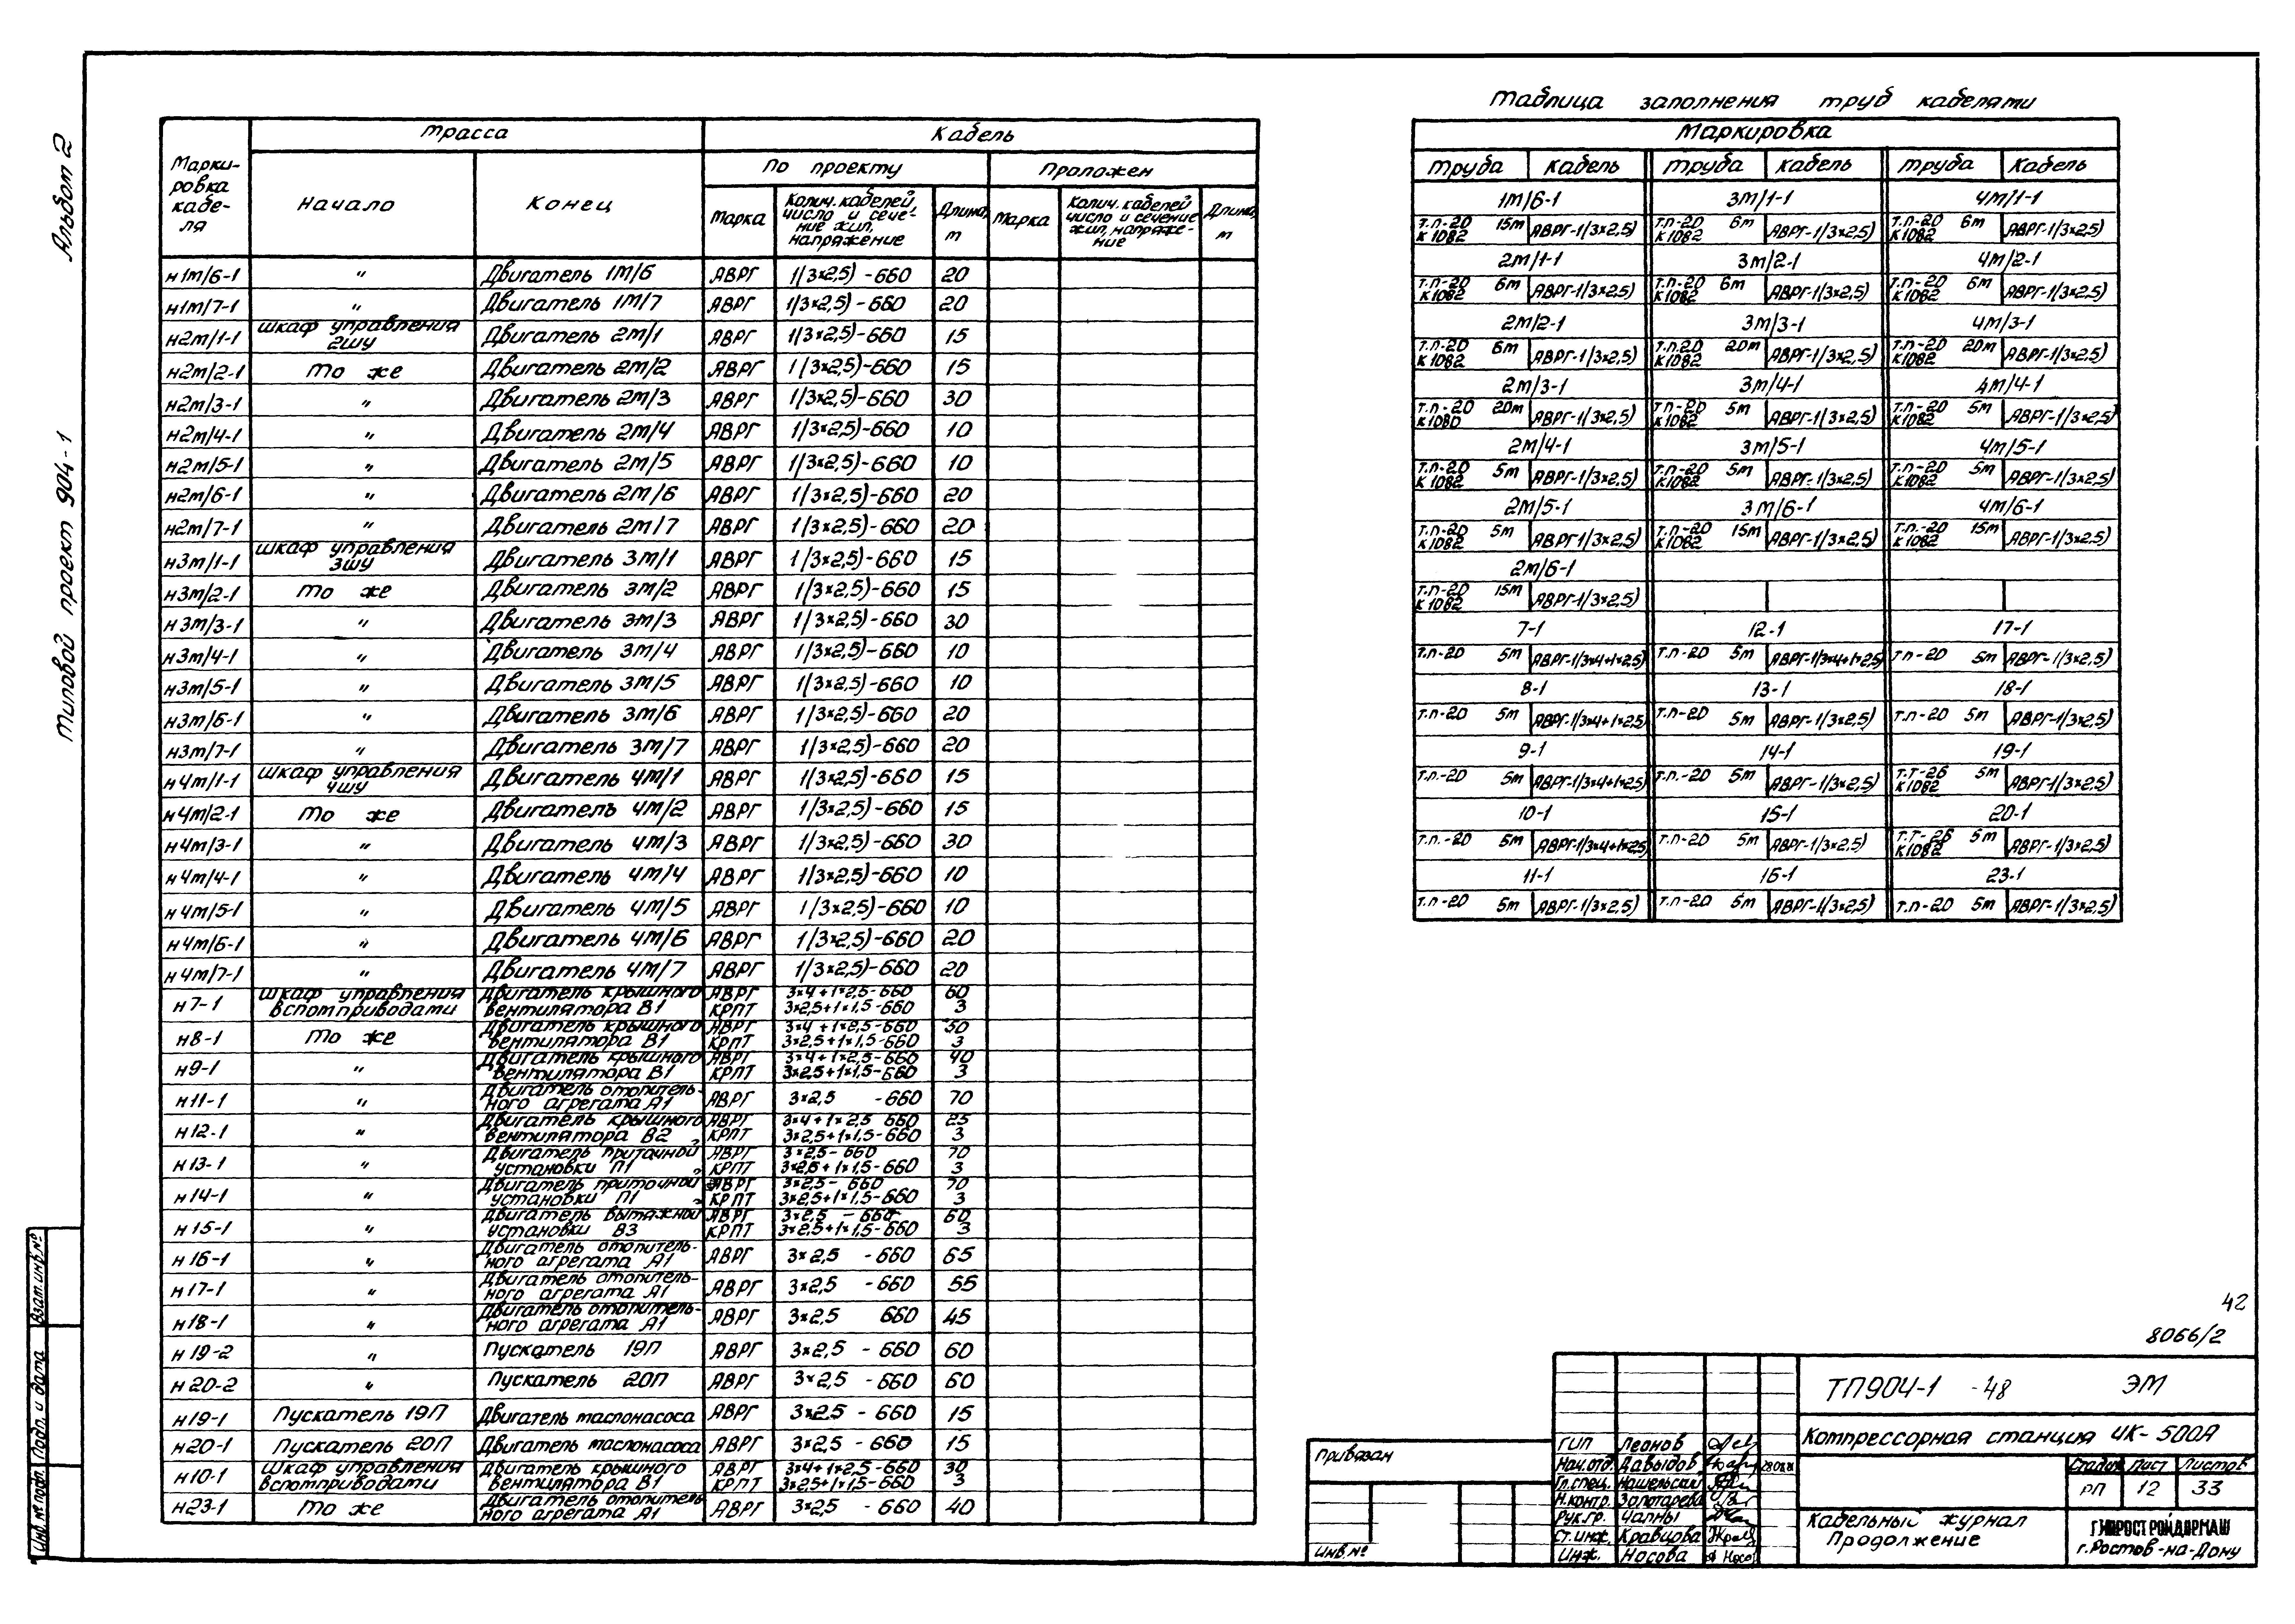 Альбом 2
Типовой проект 904-1
Марки-
ровка
кабе-
ля
Трасса
Кабель
Начало
Конец
По проекту
Проложен
Марка
Колич. кабелей,
число и сече-
ние жил,
напряжение
Длина,
м
Марка
Колич. кабелей
число и сечение
жил, напряже-
ние
Длина,
м
н1м/6-1 " Двигатель 1м/6 АВРГ 1(3×2,5)-660 20
н1м/7-1 " Двигатель 1м/7 АВРГ 1(3×2,5)-660 20
н2м/1-1 Шкаф управления 2шу Двигатель 2м/1 АВРГ 1(3×2,5)-660 15
н2м/2-1 То же Двигатель 2м/2 АВРГ 1(3×2,5)-660 15
н2м/3-1 " Двигатель 2м/3 АВРГ 1(3×2,5)-660 30
н2м/4-1 " Двигатель 2м/4 АВРГ 1(3×2,5)-660 10
н2м/5-1 " Двигатель 2м/5 АВРГ 1(3×2,5)-660 10
н2м/6-1 " Двигатель 2м/6 АВРГ 1(3×2,5)-660 20
н2м/7-1 " Двигатель 2м/7 АВРГ 1(3×2,5)-660 20
н3м/1-1 Шкаф управления 3шу Двигатель 3м/1 АВРГ 1(3×2,5)-660 15
н3м/2-1 То же Двигатель 3м/2 АВРГ 1(3×2,5)-660 15
н3м/3-1 " Двигатель 3м/3 АВРГ 1(3×2,5)-660 30
н3м/4-1 " Двигатель 3м/4 АВРГ 1(3×2,5)-660 10
н3м/5-1 " Двигатель 3м/5 АВРГ 1(3×2,5)-660 10
н3м/6-1 " Двигатель 3м/6 АВРГ 1(3×2,5)-660 20
н3м/7-1 " Двигатель 3м/7 АВРГ 1(3×2,5)-660 20
н4м/1-1 Шкаф управления 4шу Двигатель 4м/1 АВРГ 1(3×2,5)-660 15
н4м/2-1 То же Двигатель 4м/2 АВРГ 1(3×2,5)-660 15
н4м/3-1 " Двигатель 4м/3 АВРГ 1(3×2,5)-660 30
н4м/4-1 " Двигатель 4м/4 АВРГ 1(3×2,5)-660 10
н4м/5-1 " Двигатель 4м/5 АВРГ 1(3×2,5)-660 10
н4м/6-1 " Двигатель 4м/6 АВРГ 1(3×2,5)-660 20
н4м/7-1 " Двигатель 4м/7 АВРГ 1(3×2,5)-660 20
н7-1 Шкаф управления Двигатель крышного АВРГ 3×4+1×2,5-660 60
вспомприводами вентилятора В1 КРПТ 3×2,5+1×1,5-660 3
н8-1 То же Двигатель крышного АВРГ 3×4+1×2,5-660 50
вентилятора В1 КРПТ 3×2,5+1×1,5-660 3
н9-1 " Двигатель крышного АВРГ 3×4+1×2,5-660 40
вентилятора В1 КРПТ 3×2,5+1×1,5-660 3
н11-1 " Двигатель отопитель-
ного агрегата А1 АВРГ 3×2,5 -660 70
н12-1 " Двигатель крышного АВРГ 3×4+1×2,5 660 25
вентилятора В2 КРПТ 3×2,5+1×1,5-660 3
н13-1 " Двигатель приточной АВРГ 3×2,5-660 70
установки П1 КРПТ 3×2,5+1×1,5-660 3
н14-1 " Двигатель приточной АВРГ 3×2,5-660 70
установки П1 КРПТ 3×2,5+1×1,5-660 3
н15-1 " Двигатель вытяжной АВРГ 3×2,5 -660 60
установки В3 КРПТ 3×2,5+1×1,5-660 3
н16-1 " Двигатель отопитель-
ного агрегата А1 АВРГ 3×2,5 -660 65
н17-1 " Двигатель отопитель-
ного агрегата А1 АВРГ 3×2,5 -660 55
н18-1 " Двигатель отопитель-
ного агрегата А1 АВРГ 3×2,5 660 45
н19-2 " Пускатель 19П АВРГ 3×2,5 -660 60
н20-2 " Пускатель 20П АВРГ 3×2,5 -660 60
н19-1 Пускатель 19П Двигатель маслонасоса АВРГ 3×2,5 -660 15
н20-1 Пускатель 20П Двигатель маслонасоса АВРГ 3×2,5 -660 15
н10-1 Шкаф управления Двигатель крышного АВРГ 3×4+1×2,5-660 30
вспомприводами вентилятора В1 КРПТ 3×2,5+1×1,5-660 3
н23-1 То же Двигатель отопитель
ного агрегата А1 АВРГ 3×2,5 -660 40
Таблица заполнения труб кабелями
Маркировка
Труба Кабель Труба Кабель Труба Кабель
1м/6-1 3м/1-1 4м/1-1
т.п-20 15м АВРГ-1(3×2,5) т.п-20 6м АВРГ-1(3×2,5) т.п-20 6м АВРГ-1(3×2,5)
К1082 К1082 К1082
2м/1-1 3м/2-1 4м/2-1
т.п-20 6м АВРГ-1(3×2,5) т.п-20 6м АВРГ-1(3×2,5) т.п-20 6м АВРГ-1(3×2,5)
К1082 К1082 К1082
2м/2-1 3м/3-1 4м/3-1
т.п-20 6м АВРГ-1(3×2,5) т.п.20 20м АВРГ-1(3×2,5) т.п-20 20м АВРГ-1(3×2,5)
К1082 К1082 К1082
2м/3-1 3м/4-1 4м/4-1
т.п-20 20м АВРГ-1(3×2,5) т.п-20 5м АВРГ-1(3×2,5) т.п-20 5м АВРГ-1(3×2,5)
К1080 К1082 К1082
2м/4-1 3м/5-1 4м/5-1
т.п-20 5м АВРГ-1(3×2,5) т.п-20 5м АВРГ-1(3×2,5) т.п-20 5м АВРГ-1(3×2,5)
К1082 К1082 К1082
2м/5-1 3м/6-1 4м/6-1
т.п-20 5м АВРГ1(3×2,5) т.п.-20 15м АВРГ-1(3×2,5) т.п.-20 15м АВРГ-1(3×2,5)
К1082 К1082 К1082
2м/6-1
т.п-20 15м АВРГ-1(3×2,5)
К1082
7-1 12-1 17-1
т.п-20 5м АВРГ-1(3×4+1×2,5) т.п-20 5м АВРГ-1(3×4+1×2,5) т.п-20 5м АВРГ-1(3×2,5)
8-1 13-1 18-1
т.п-20 5м АВРГ-1(3×4+1×2,5) т.п-20 5м АВРГ-1(3×2,5) т.п-20 5м АВРГ-1(3×2,5)
9-1 14-1 19-1
т.п.-20 5м АВРГ-1(3×4+1×2,5) т.п.-20 5м АВРГ-1(3×2,5) т.т-26 5м АВРГ-1(3×2,5)
К1082
10-1 15-1 20-1
т.п.-20 5м АВРГ-1(3×4+1×2,5) т.п-20 5м АВРГ-1(3×2,5) т.т-26 5м АВРГ-1(3×2,5)
К1082
11-1 16-1 23-1
т.п-20 5м АВРГ-1(3×2,5) т.п-20 5м АВРГ-1(3×2,5) т.п-20 5м АВРГ-1(3×2,5)
42
8066/2
ТП904-1 -48 ЭМ
Компрессорная станция ЧК-500А
Стадия Лист Листов
РП 12 33
Кабельный журнал
Продолжение
ГИПРОСТРОЙДОРМАШ
г.Ростов-на-Дону
ГИП Леонов
Нач.отд. Давыдов
Гл.спец. Нашельский
Н.контр. Золотарева
Рук.гр. Чапны
Ст.инж. Кравцова
Инж. Носова
Привязан
Инв.№
Взам.инв.№
Подп. и дата
Инв.№ подл.